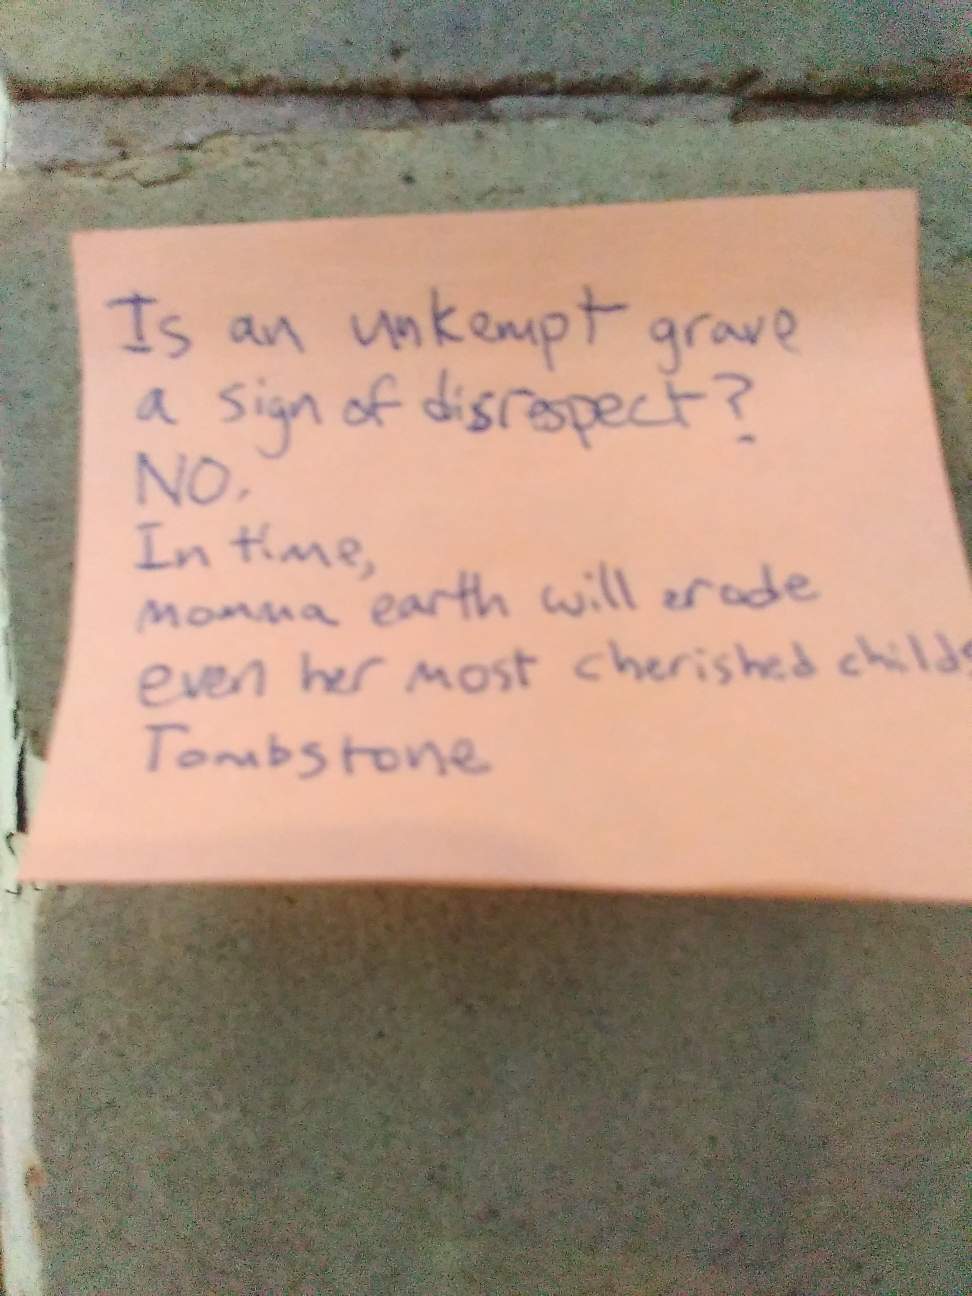 Is an unkempt grave
a sign of disrespect?
NO.
In time,
momma earth will erode
even her most cherished childs
Tombstone